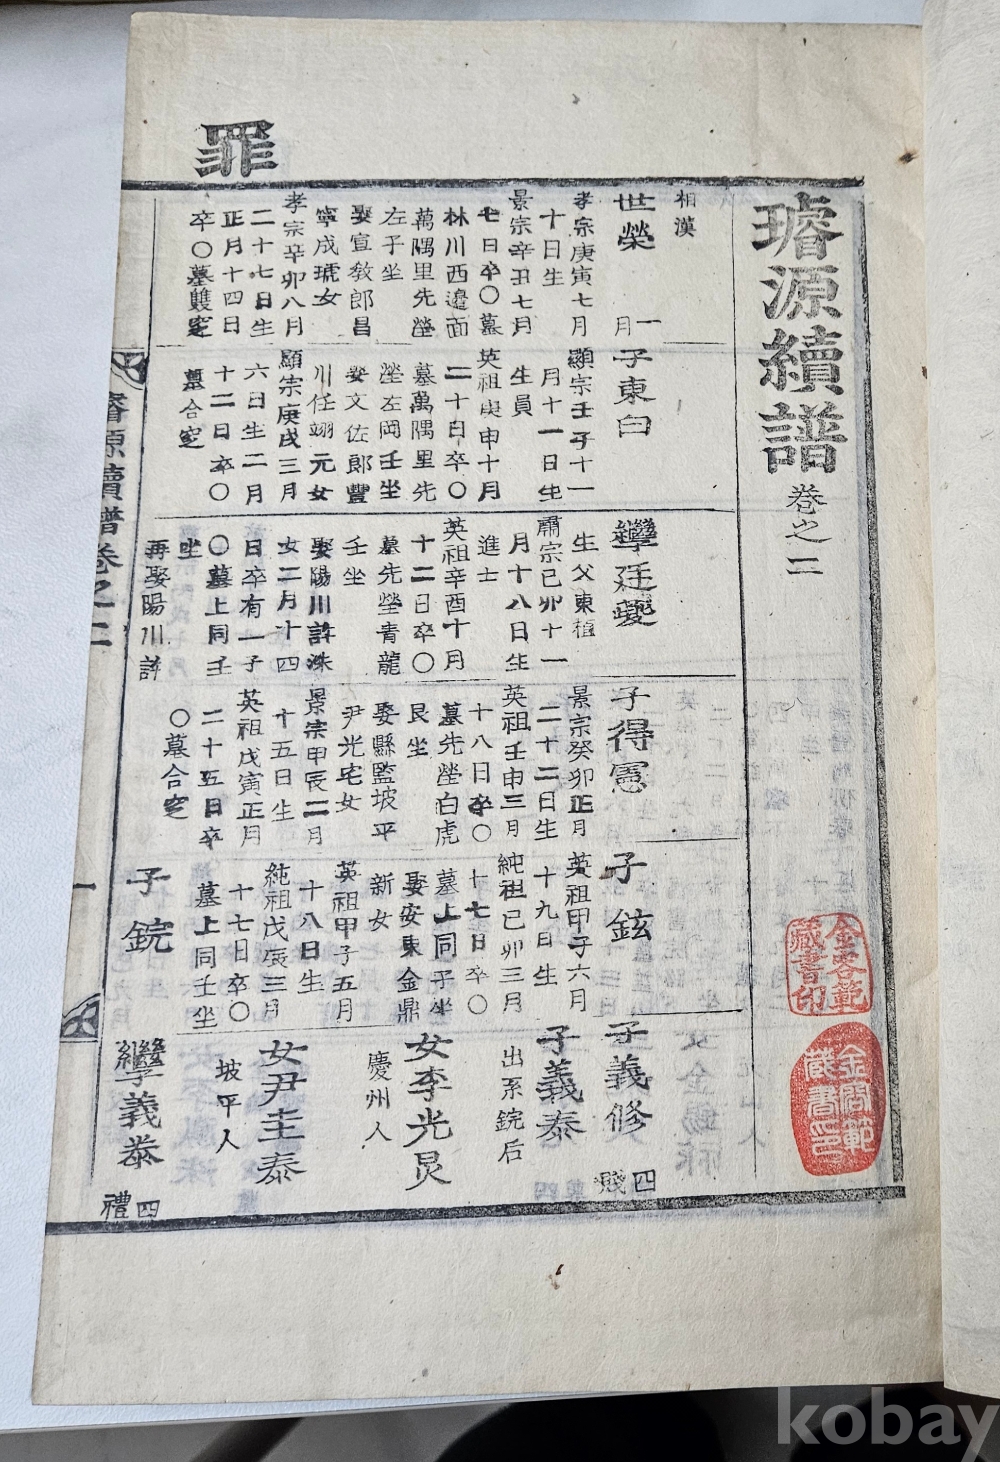 罪
璿源續譜 卷之二
相漢
世榮
一月
孝宗庚寅七月
十日生
景宗辛丑七月
七日卒〇墓
林川西邉面
萬隅里先塋
左子坐
娶宣敎郎昌
寧成琥女
孝宗辛卯八月
二十七日生
正月十四日
卒〇墓雙窆
子東白
顯宗壬子十一
月十一日生
生員
英祖庚申十月
二十日卒〇
墓萬隅里先
塋左岡壬坐
娶文佐郎豐
川任翊元女
顯宗庚戌三月
六日生二月
十二日卒〇
墓合窆
孿廷夔
生父東稙
肅宗己卯十一
月十八日生
進士
英祖辛酉十月
十二日卒〇
墓先塋青龍
壬坐
娶陽川許洙
女二月十四
日卒有一子
〇墓上同壬
坐
再娶陽川許
子得憲
景宗癸卯正月
二十二日生
英祖壬申三月
十八日卒〇
墓先塋白虎
艮坐
娶縣監坡平
尹光宅女
景宗甲辰二月
十五日生
英祖戊寅正月
二十五日卒
〇墓合窆
子鉉
英祖甲子六月
十九日生
純祖己卯三月
十七日卒〇
墓上同子坐
娶安東金鼎
新女
英祖甲子五月
十八日生
純祖戊辰三月
十七日卒〇
墓上同壬坐
子鋎
子義修
四賤
子義泰
出系鋎后
女李光炅
慶州人
女尹圭泰
坡平人
繼孿義泰
四禮
璿源續譜卷之二
一
金容範藏書印
金商範藏書印
kobay